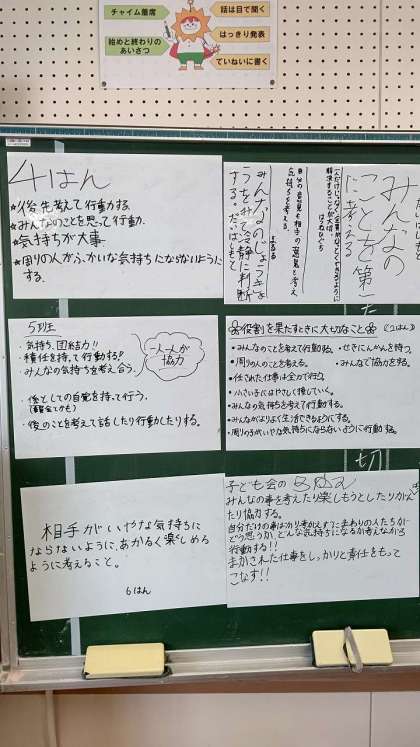 チャイム着席
始めと終わりの
あいさつ
話は目で聞く
はっきり発表
ていねいに書く
4はん
★後先考えて行動する
★みんなのことを思って行動.
★気持ちが大事
★周りの人がふかいな気持ちにならないように
する.
みんなの
ことを第一
に考える
一人だけじゃなく全員がなっとくできるように
解決することが大切.
自分の意見も相手の意見も考え
気持ちを考える.
みんなのじょうきょ
うをみて冷静に判断
する.
5班
・気持ち、団結力!!
・責任を持って行動する!
・みんなの気持ちを考え合う.
一人一人が
協力
・後としての自覚を持って行う.
・後のことを考えて話したり行動したりする.
役割を果たすときに大切なこと
(2はん)
・みんなのことを考えて行動する.
・せきにんかんを持つ.
・周りの人のことを考える.
・みんなで協力する.
・任された仕事は全力で行う.
・小さい子にはやさしく接していく.
・みんなの気持ちを考えて行動する.
・みんながよりよく生活できるようにする.
・周りの子がいやな気持ちにならないように行動する.
切
相手がいやな気持ちに
ならないように、あかるく楽しめる
ように考えること。
6はん
子ども会の
みんなの事を考えたり楽しもうとしたり
たり協力する。
自分だけの事ばかり考えすに、まわりの人たちが
どう思うか、どんな気持ちになるか考えながら
行動する!!
まかされた仕事をしっかりと責任をもって
こなす!!